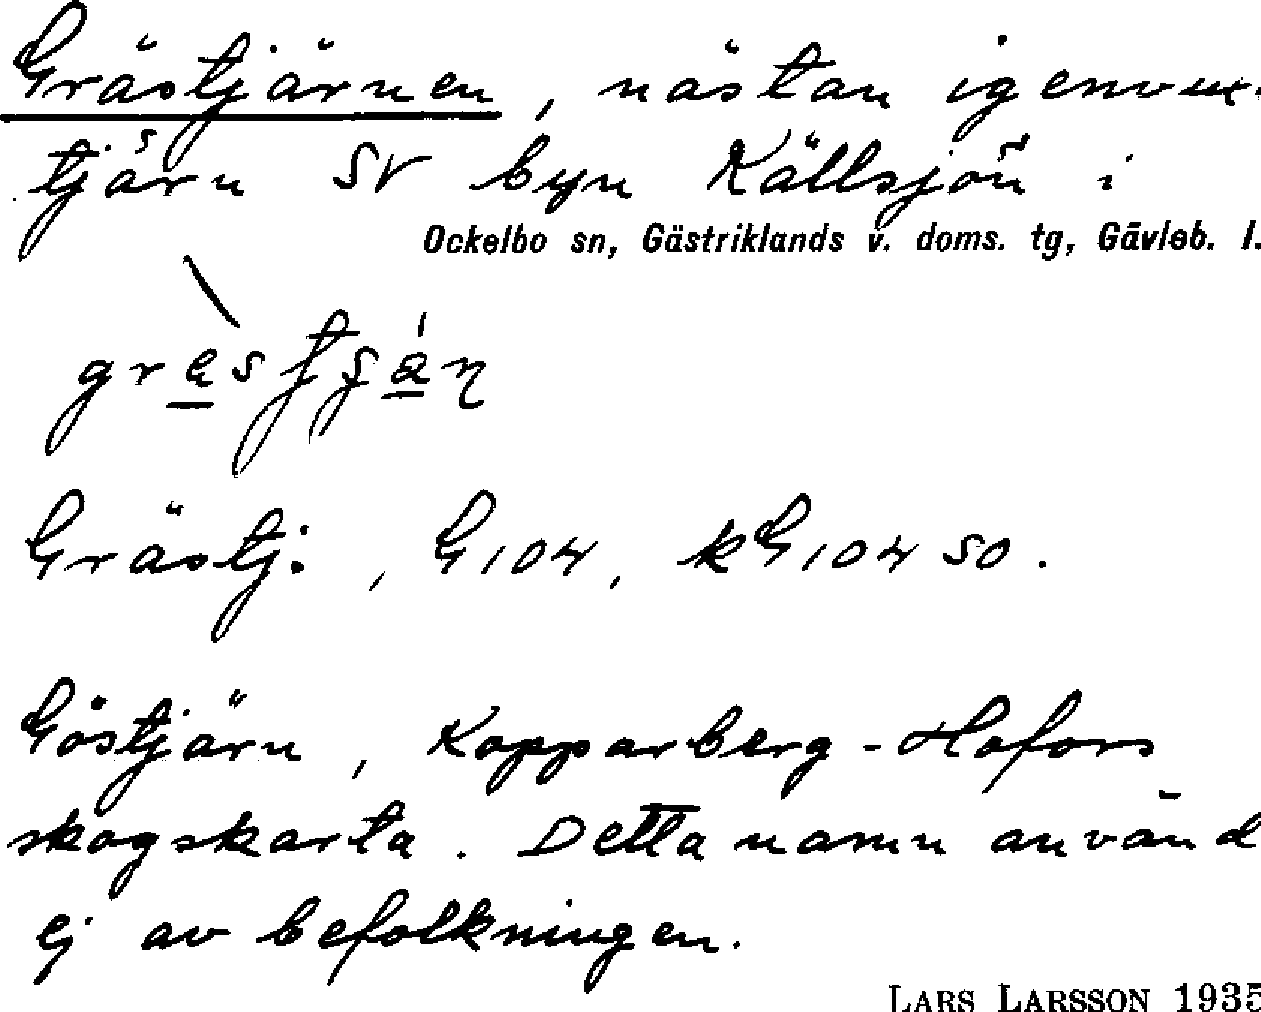 Grästjärnen, nästan igenvux.
tjärn SV byn Källsjön i
Ockelbo sn, Gästriklands v. doms. tg, Gävleb. l.
Grästj:, G104, kG104 SO.
Göstjärn, Kopparberg-Hofors
skogskarta. Detta namn använd
ej av befolkningen.
LARS LARSSON 1935